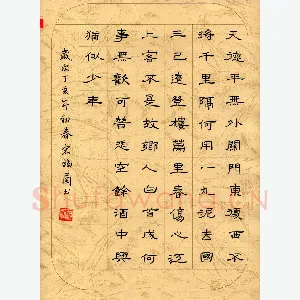 天德平無外關門東復西不
將千里隔何用一丸泥去國
三巴遠登樓萬里春傷心江
上客不是故鄉人白首成何
事無歡可替悲空餘酒中興
猶似少年
歲次丁亥年初春